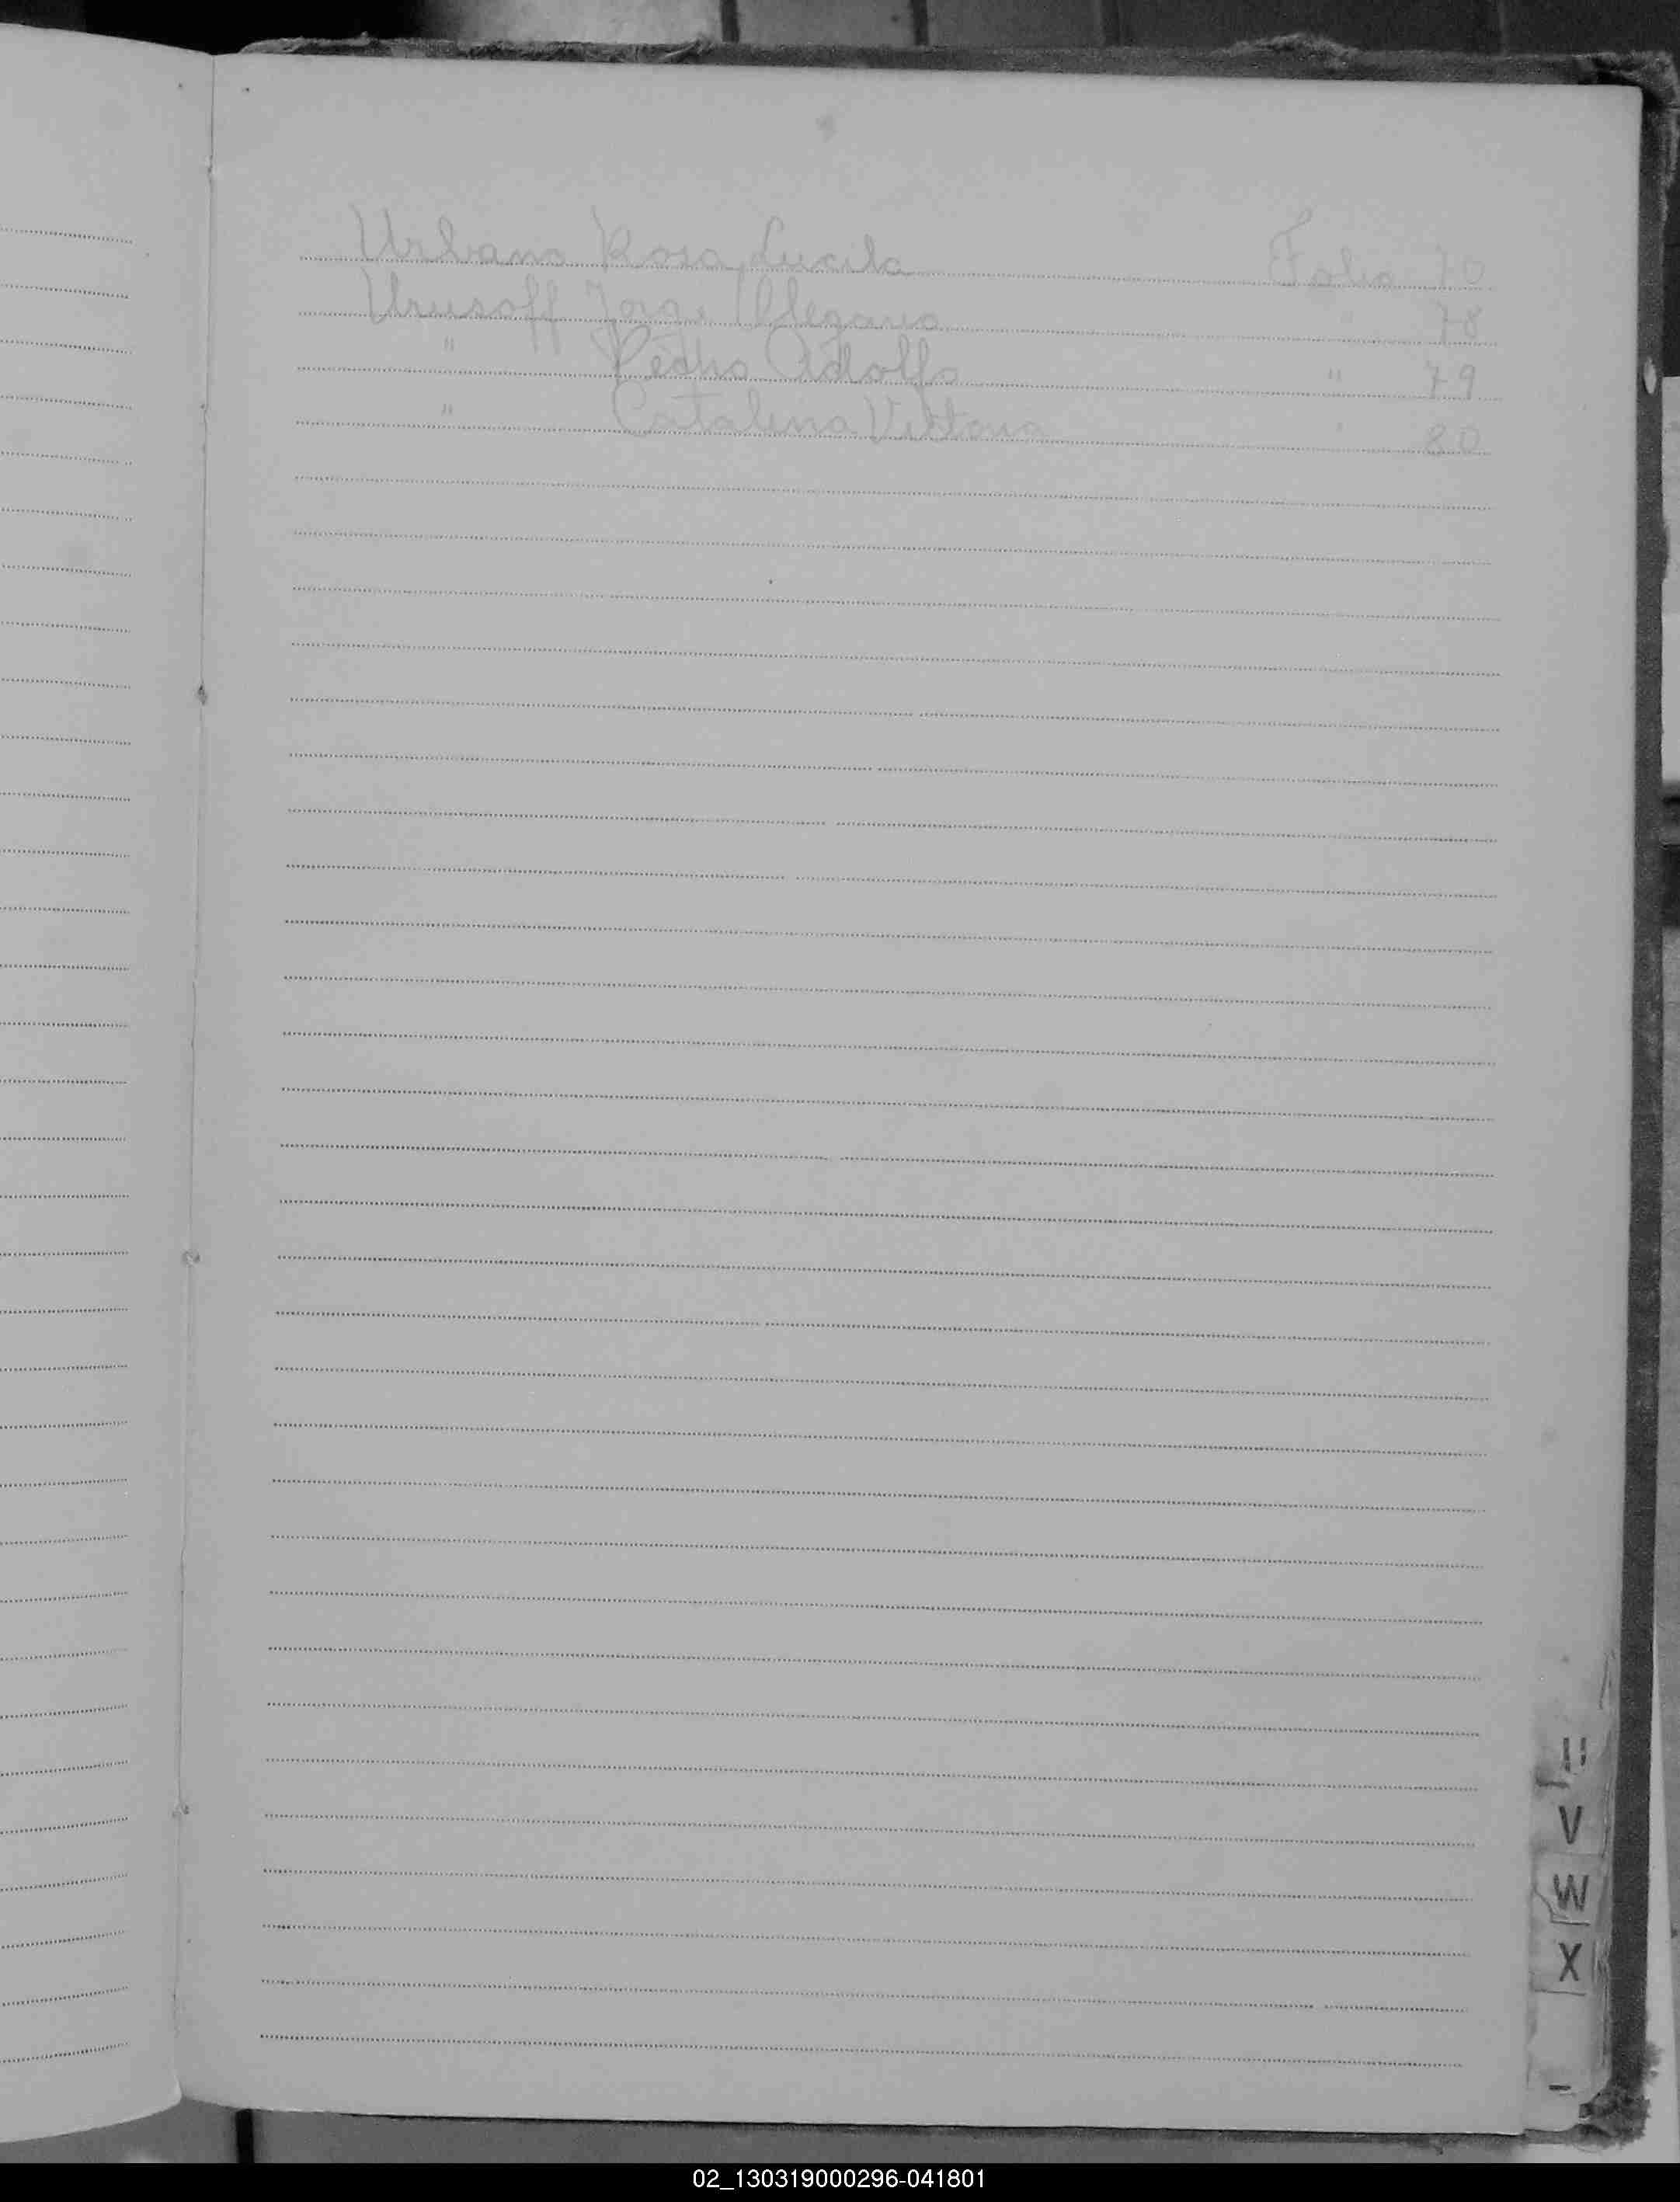 Urbano Rosa Lucila Folio 70
Urusoff Jorge 78
" Pedro Adolfo " 79
" Catalina Victoria " 80
U
V
W
X
02_130319000296-041801